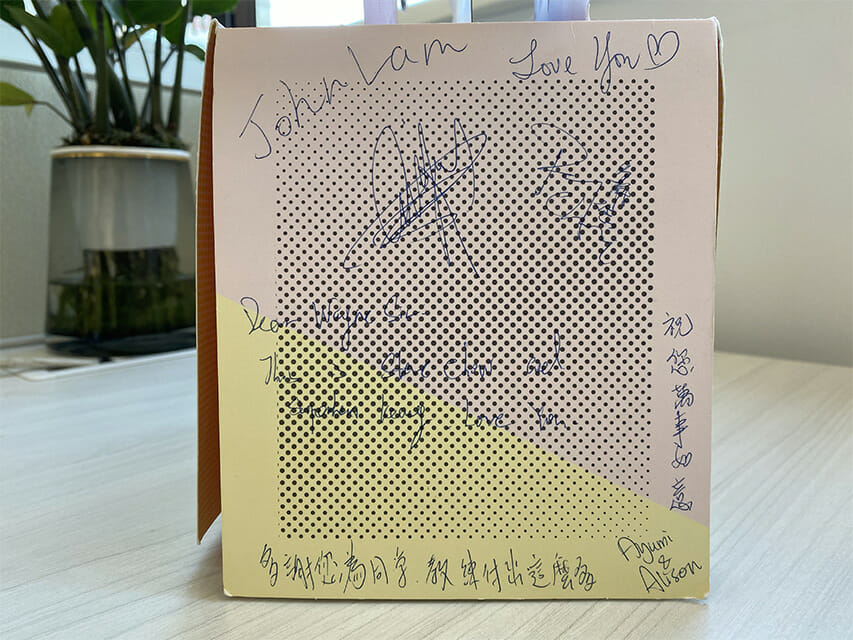 John Lam
Love You♡
Dear Wayne Sir
This is Steve Chow and
Stephen Leung Love You
祝您萬事如意
多謝您為同學、教練付出這麼多
Ayumi
&
Alison